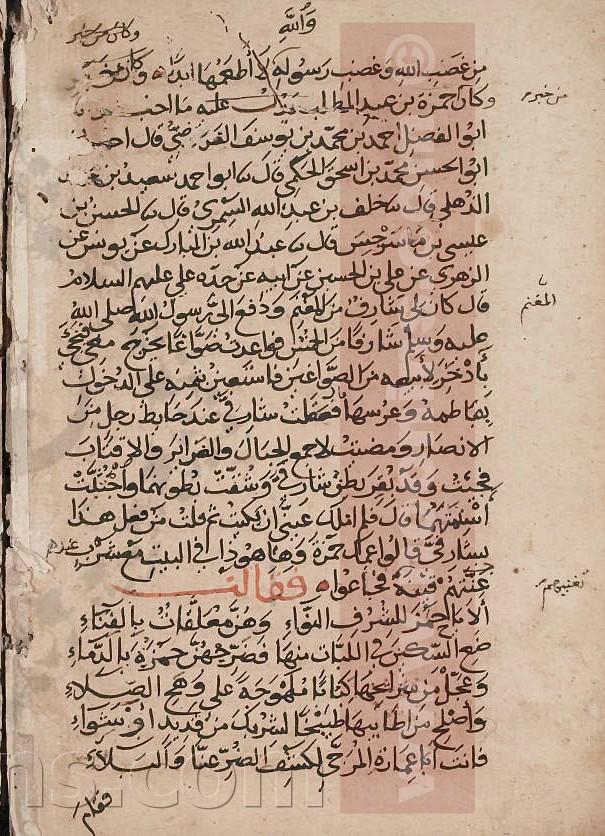 والله
وكان من خبر
من غضب الله وغضب رسوله لا أطعمها ابدا وكان من
وكان حمزة بن عبد المطلب عليه ما اخبرنا
ابو الفضل احمد بن محمد بن يوسف قال
ابو الحسن محمد بن اسحق قال نا ابو احمد سعيد بن
الذهلي قال نا خلف بن عبد الله قال نا الحسن بن
عيسى بن ماسرجس قال نا عبد الله بن المبارك عن يونس عن
الزهري عن علي بن الحسين عن ابيه عن جده علي عليهم السلام
قال كان لي شارف من المغنم ودفع الي رسول الله صلى الله
عليه وسلم شارفا من الخمس فواعدت صواغا يخرج معي فنجي
بأذخر لأبيعه من الصواغين فاستعين بثمنه على الدخول
بفاطمة وعرسها فجعلت شارفي عند حايط رجل من
الانصار ومضيت لاجمع الحبال والغراير والاقتاب
فجيت وقد بقر بطن شارفي وشقت بطونهما واجتلت
اسنمتهما قال فلم املك عيني ان بكيت ثم قلت من فعل هذا
بشارفي قالوا عمك حمزة وها هو ذا في البيت مع شرب
غنتهم قينة فقالت
ألا يا حمز للشرف النواء وهن معقلات بالفناء
ضع السكين في اللبات منها فضرجهن حمزة بالدماء
وعجل من شرائحها كبابا ملهوجة على وهج الصلاء
واصلح من اطايبها طبيخا لشربك من قديد او شواء
فانت ابا عمارة المرجى لكشف الضر عنا والبلاء
فقام
من خبره
المغنم
تغنيهم
عندهم